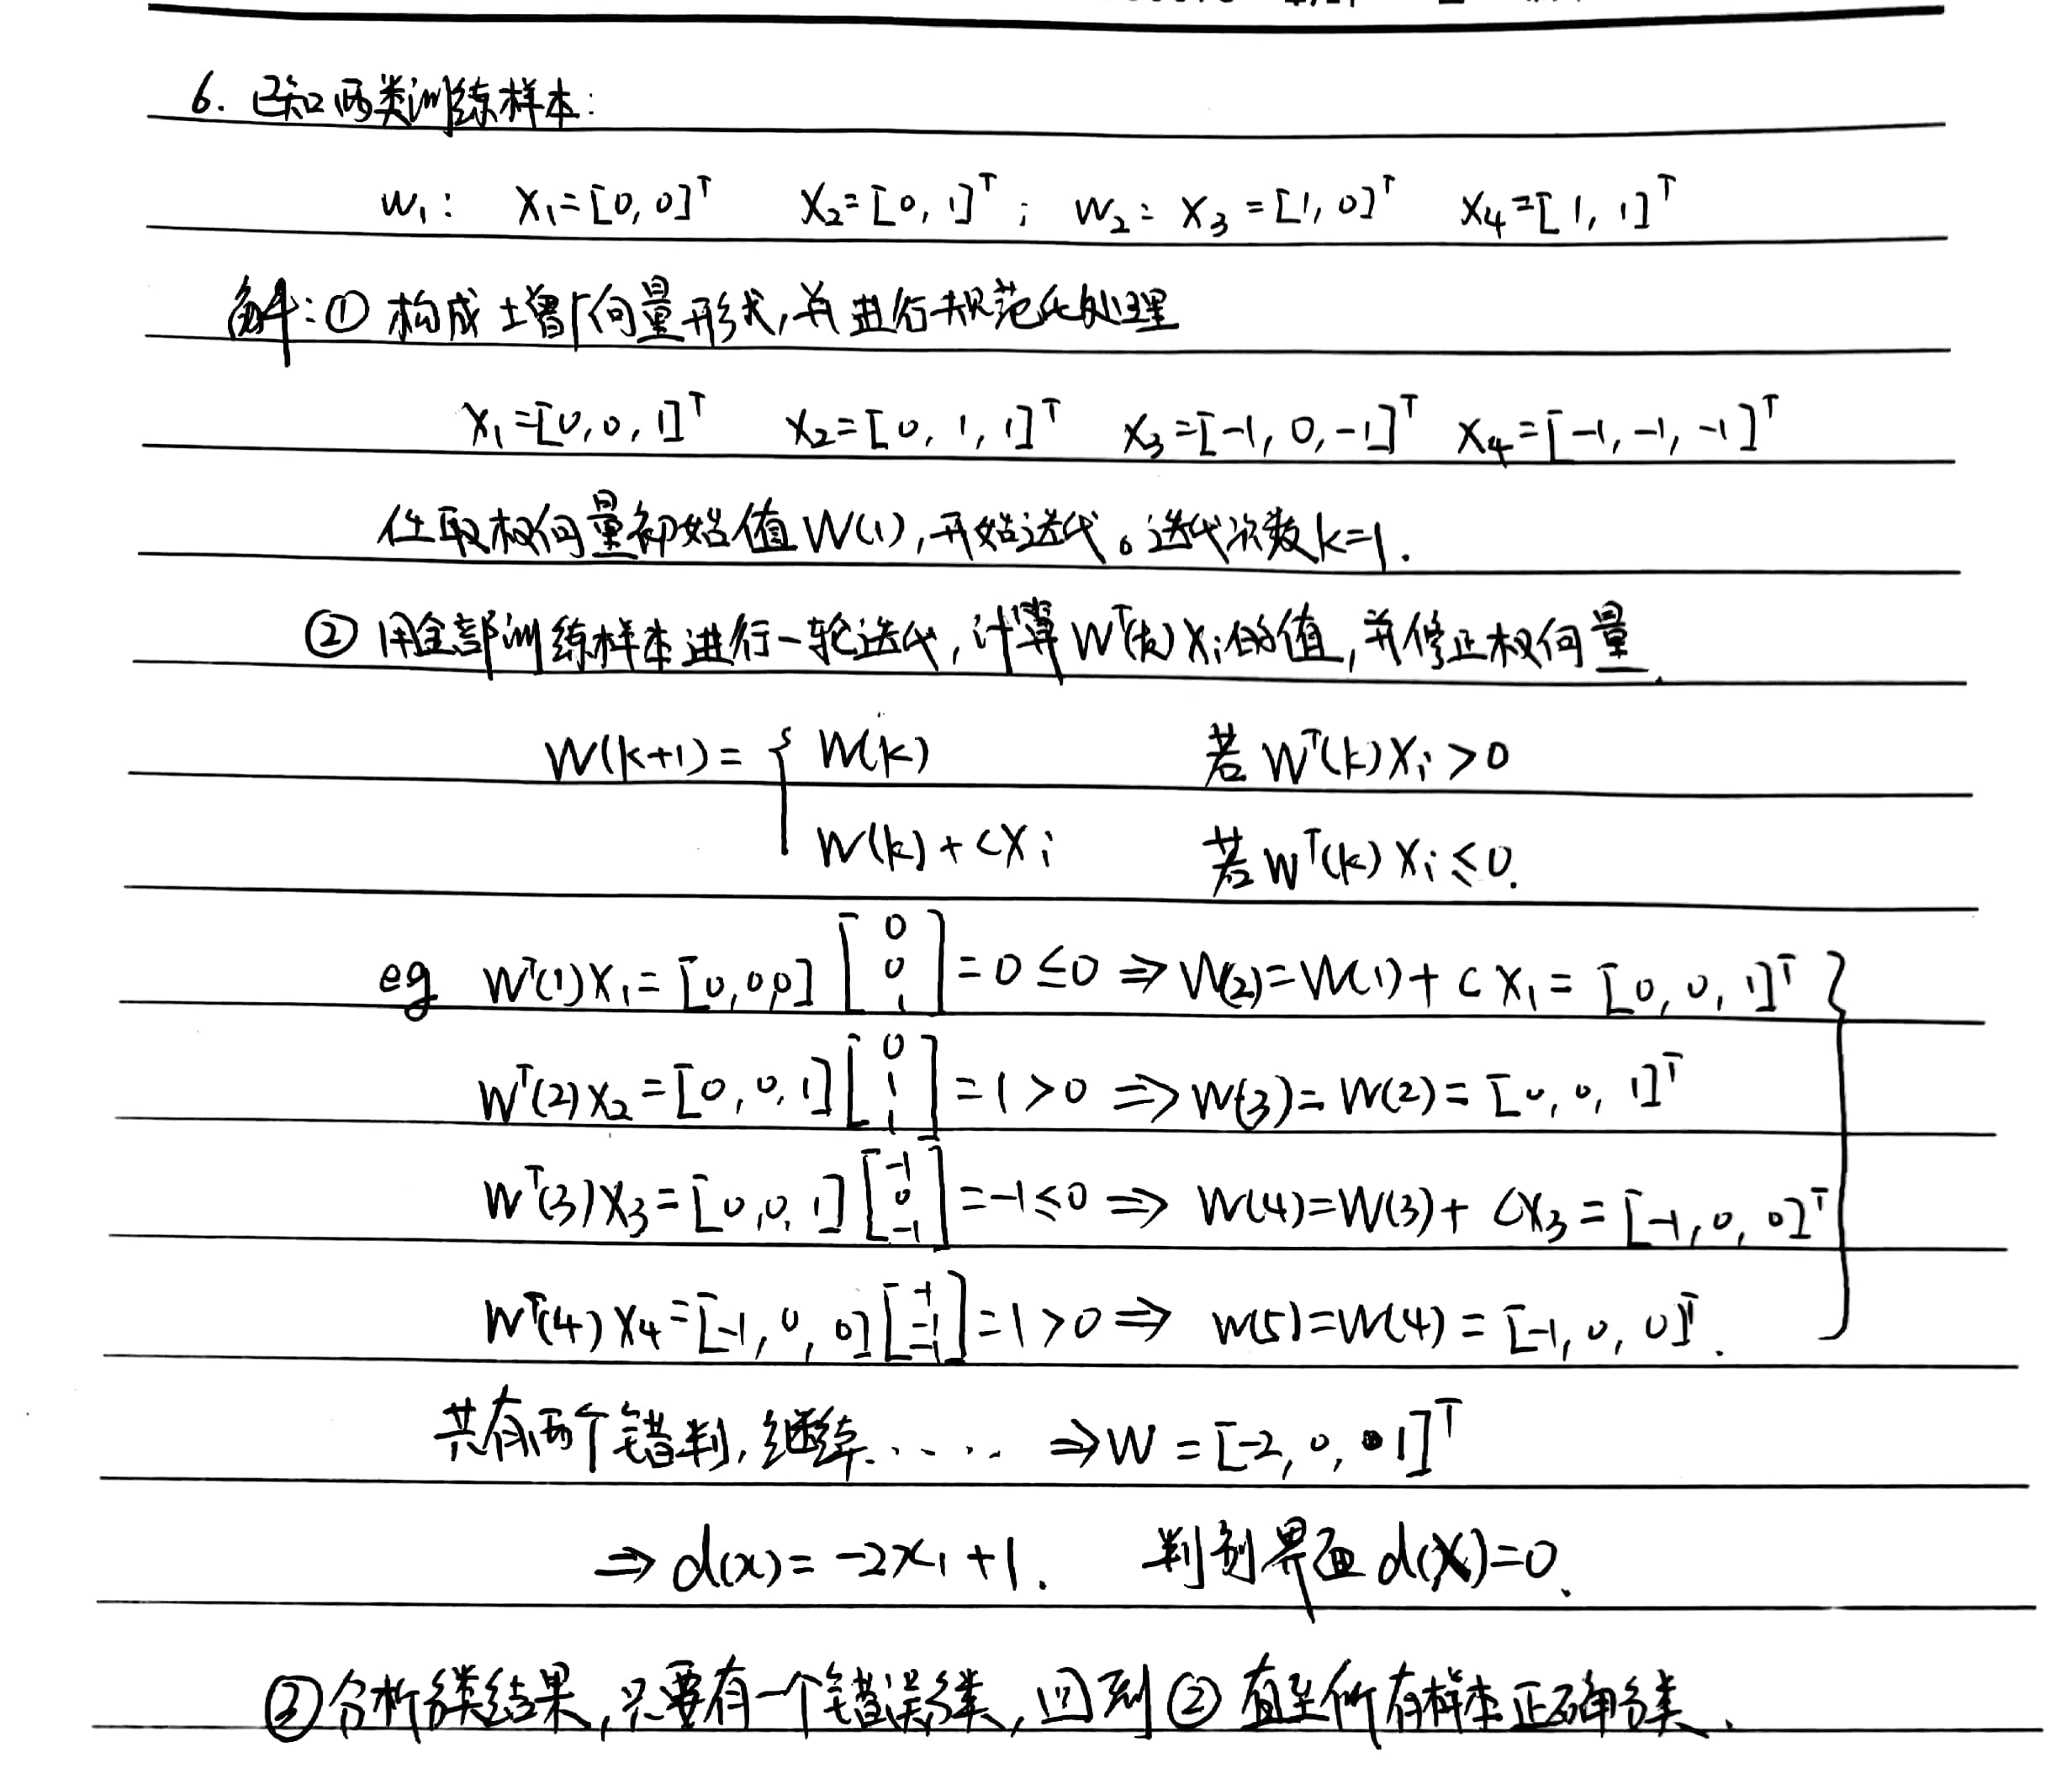 6. 已知两类训练样本:
w₁: X₁=[0,0]ᵀ X₂=[0,1]ᵀ; W₂: X₃=[1,0]ᵀ X₄=[1,1]ᵀ
解:① 构成增广向量形式,并进行规范化处理
X₁=[0,0,1]ᵀ X₂=[0,1,1]ᵀ X₃=[-1,0,-1]ᵀ X₄=[-1,-1,-1]ᵀ
任取权向量初始值W(1),开始迭代。迭代次数k=1.
② 用全部训练样本进行一轮迭代,计算Wᵀ(k)Xᵢ的值,并修正权向量.
W(k+1)= { W(k) 若Wᵀ(k)Xᵢ>0
W(k)+CXᵢ 若Wᵀ(k)Xᵢ≤0.
eg Wᵀ(1)X₁=[0,0,0][0 0 1]=0≤0 ⇒ W(2)=W(1)+CX₁=[0,0,1]ᵀ }
Wᵀ(2)X₂=[0,0,1][0 1 1]=1>0 ⇒ W(3)=W(2)=[0,0,1]ᵀ
Wᵀ(3)X₃=[0,0,1][-1 0 -1]=-1≤0 ⇒ W(4)=W(3)+CX₃=[-1,0,0]ᵀ
Wᵀ(4)X₄=[-1,0,0][-1 -1 -1]=1>0 ⇒ W(5)=W(4)=[-1,0,0]ᵀ.
共有两个错判,继续..... ⇒W=[-2,0,1]ᵀ
⇒ d(x)=-2x₁+1. 判别界面d(X)=0.
③分析分类结果,只要有一个错误分类,回到②直至所有样本正确分类.